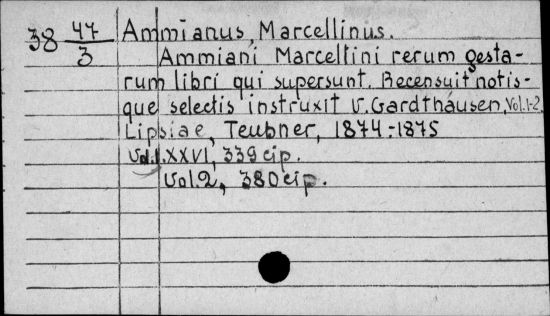 38 47/3 Ammianus, Marcellinus.
Ammiani Marcellini rerum gesta-
rum libri qui supersunt. Recensuit notis-
que selectis instruxit V. Gardthausen, Vol. 1-2.
Lipsiae, Teubner, 1874-1875
Vol. 1. XXVI, 339 cip.
Vol. 2, 380 cip.